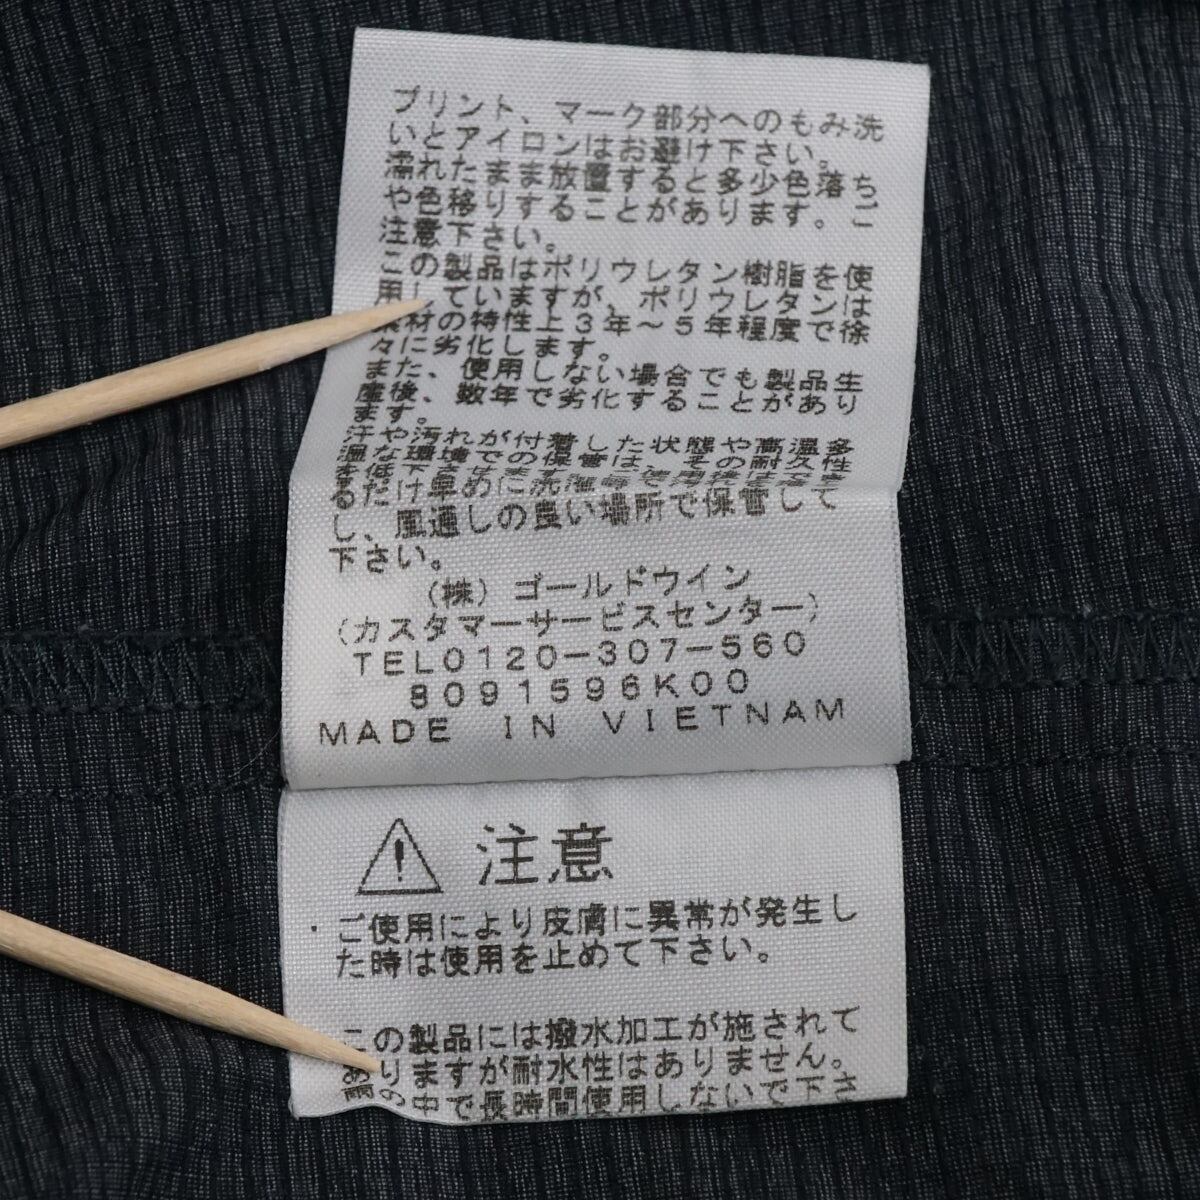 プリント、マーク部分へのもみ洗
いとアイロンはお避け下さい。
濡れたまま放置すると多少色落ち
や色移りすることがあります。ご
注意下さい。
この製品はポリウレタン樹脂を使
用していますが、ポリウレタンは
素材の特性上3年～5年程度で徐
々に劣化します。
また、使用しない場合でも製品生
産後、数年で劣化することがあり
ます。
汗や汚れが付着した状態や高温多
湿な環境での保管は、その耐久性
を低下させます。ご使用後はでき
るだけ早めに洗濯等で汚れを落と
し、風通しの良い場所で保管して
下さい。
(株)ゴールドウイン
(カスタマーサービスセンター)
TEL0120-307-560
8091596K00
MADE IN VIETNAM
注意
・ご使用により皮膚に異常が発生し
た時は使用を止めて下さい。
この製品には撥水加工が施されて
ありますが耐水性はありません。
雨の中で長時間使用しないで下さ